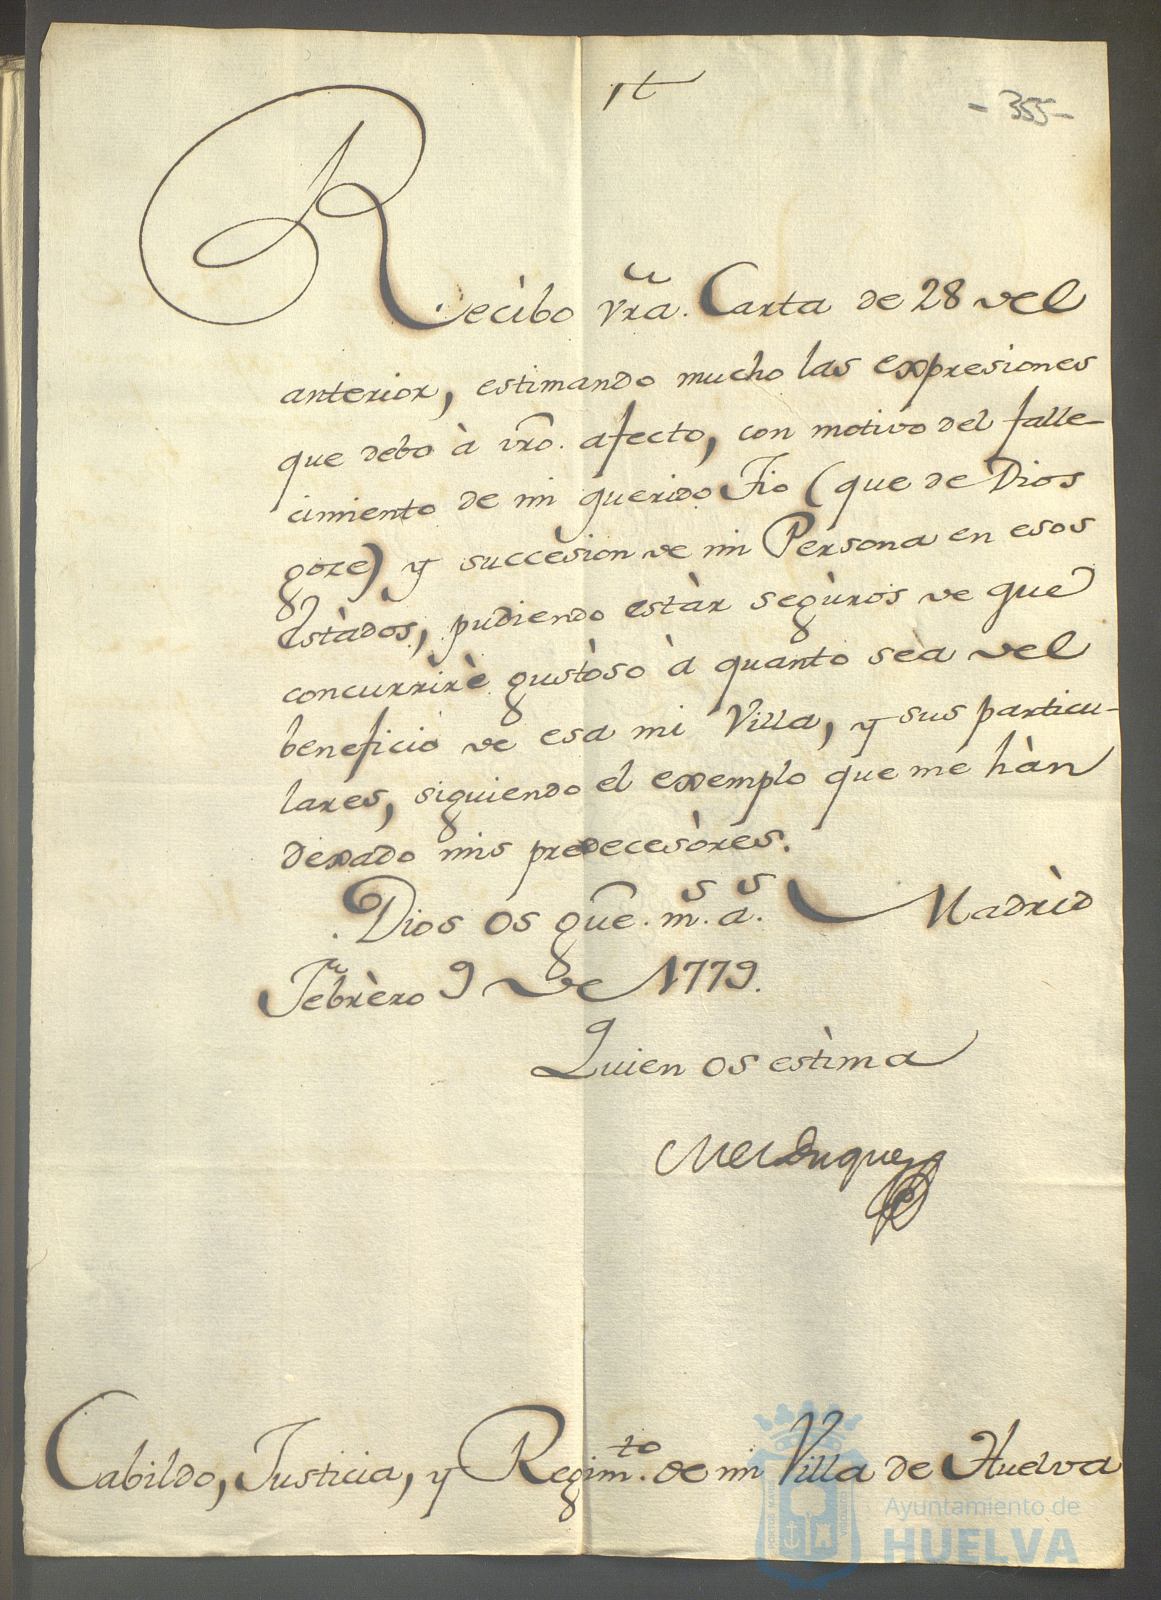 - 355 -
Recibo vrã. Carta de 28 del
anterior, estimando mucho las expresiones
que debo à vrõ. afecto, con motivo del falle-
cimiento de mi querido Tio (que de Dios
goze) y succèsion de mi Persona en esos
Estàdos, pudiendo estàr segùros de que
concurrirè gustòso à quanto sèa del
beneficiò de esa mi Villa, y sus particu-
lares, siguiendo el exemplo que me hàn
dexado mis predecesòres.
Dios os gũe. m.ˢ a.ˢ Madrìd
Febrèro 9 de 1779.
Quien os estìma
El Duque
Cabildo, Justicia, y Regim.ᵗᵒ de mi Villa de Huelva
Ayuntamiento de
HUELVA